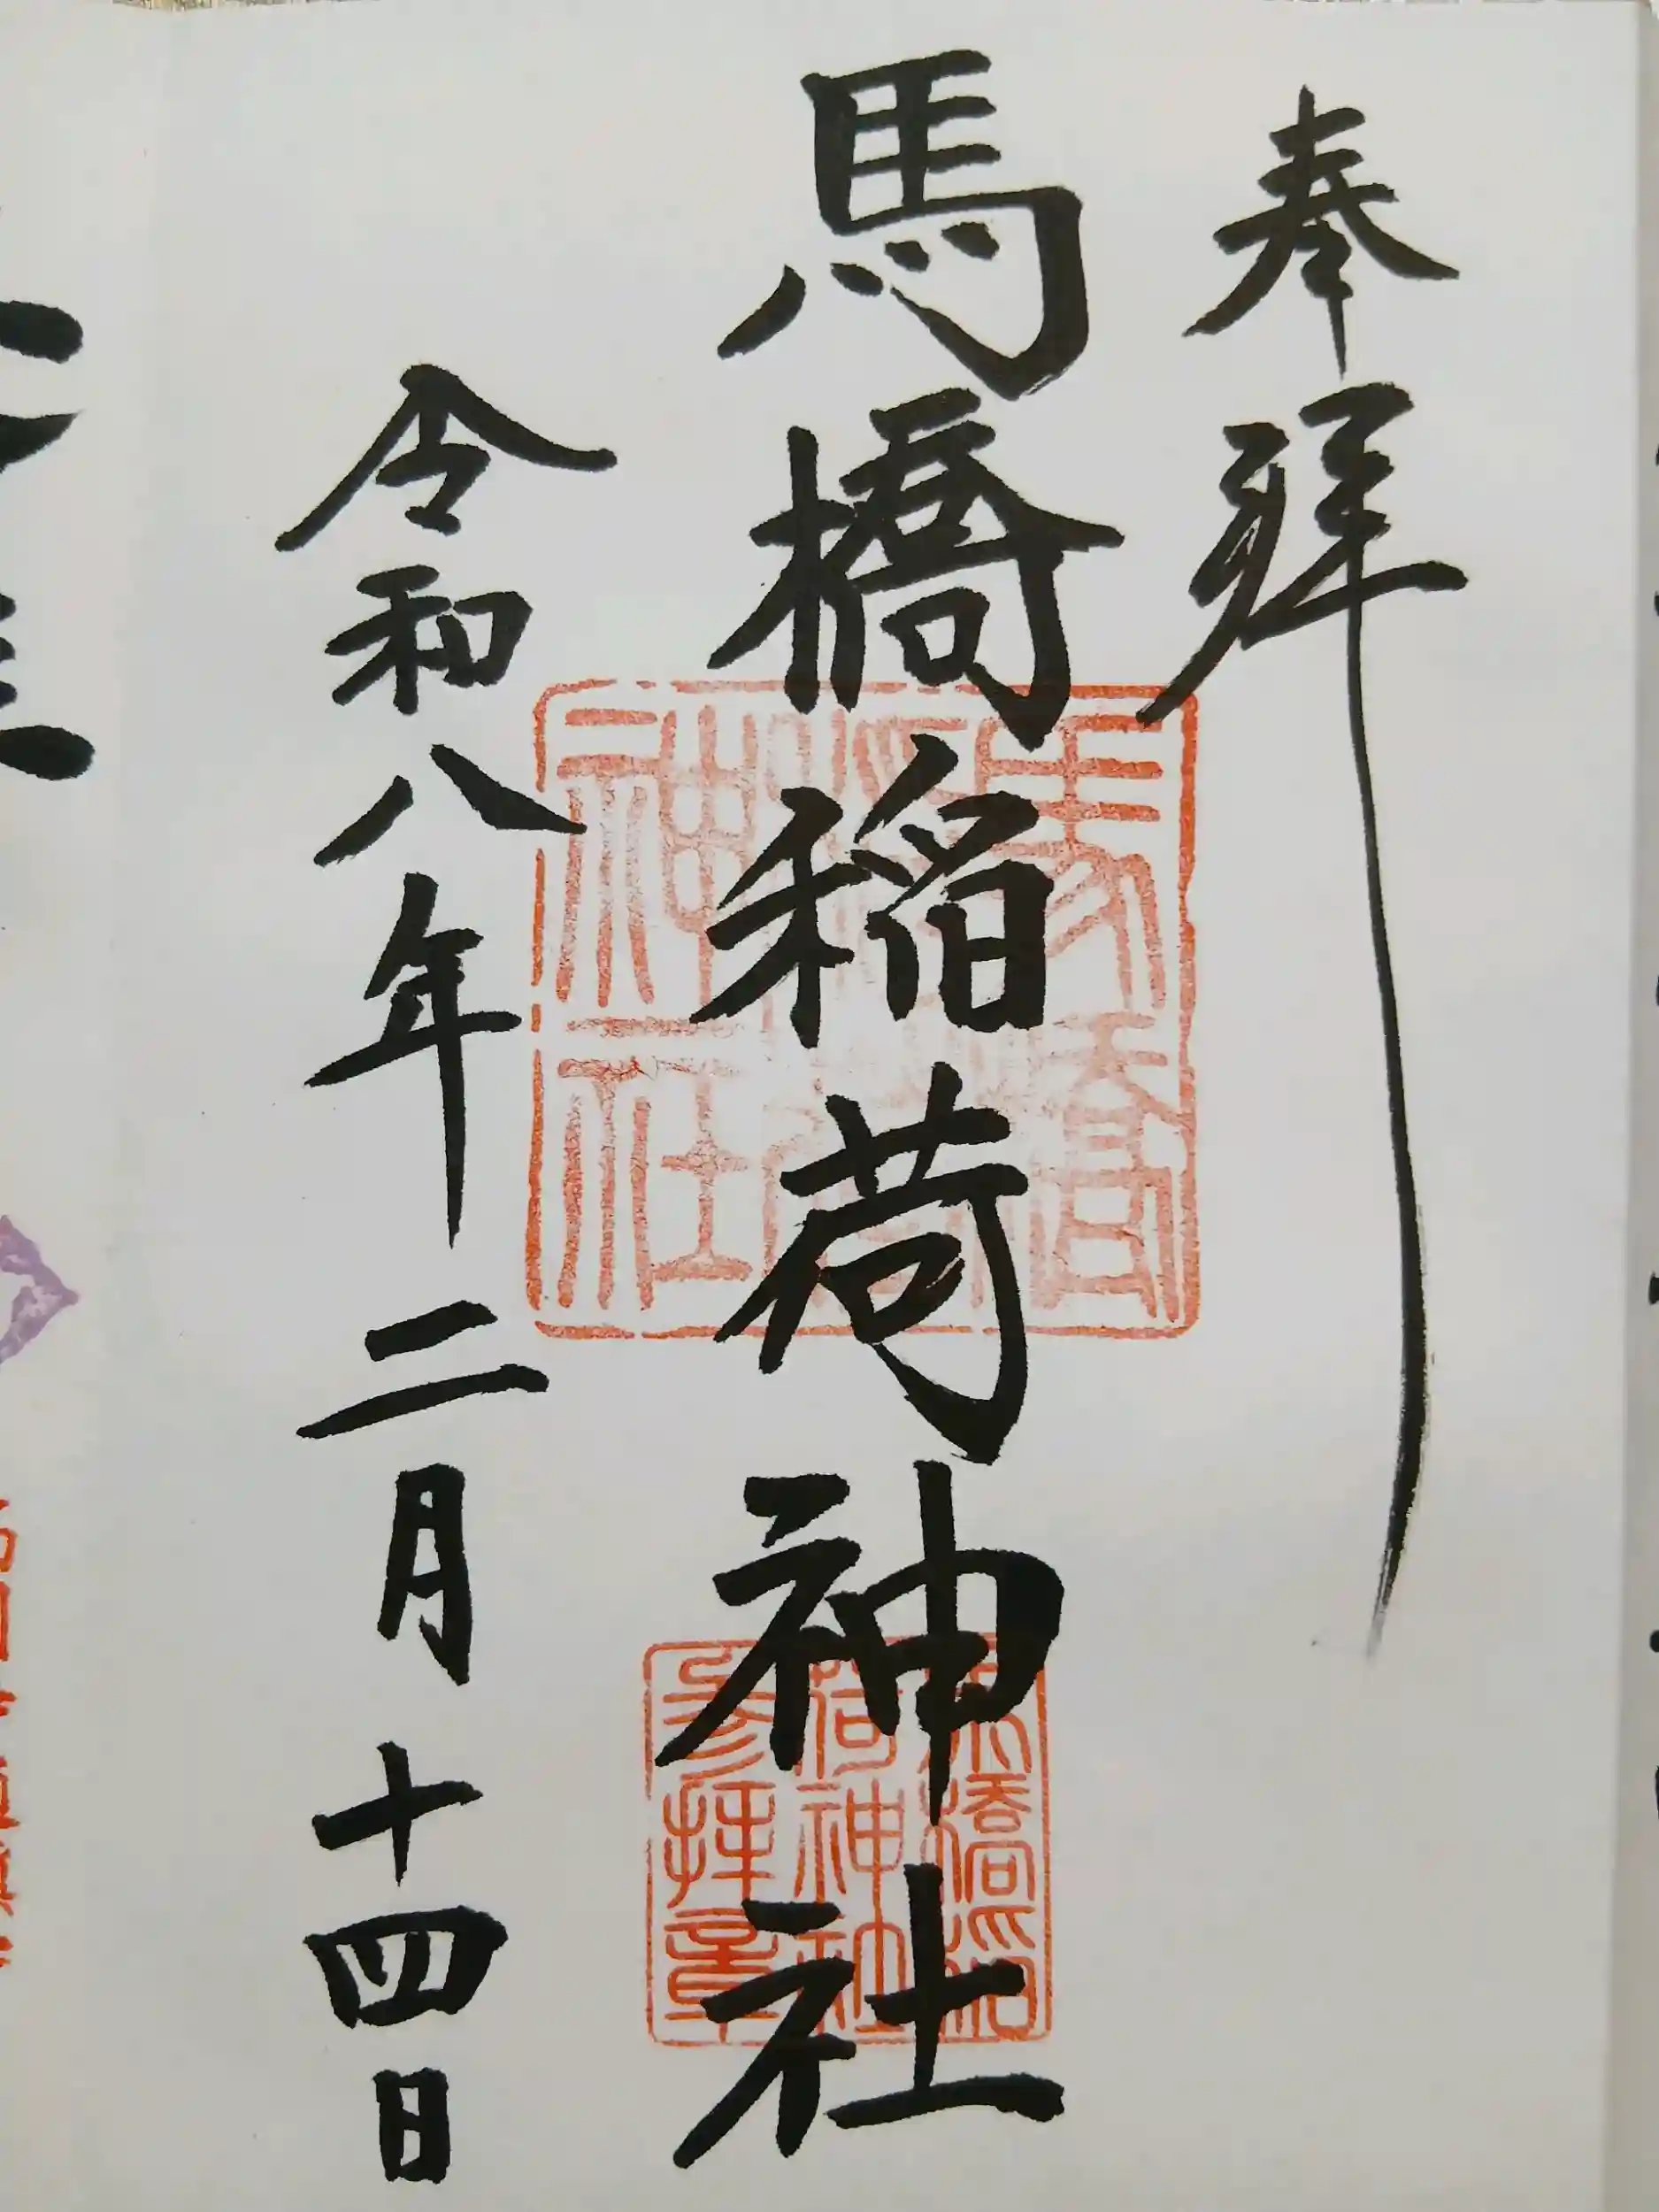 奉拜
馬橋稲荷神社
令和八年二月十四日
馬橋稲荷神社
馬橋稲荷神社参拝章